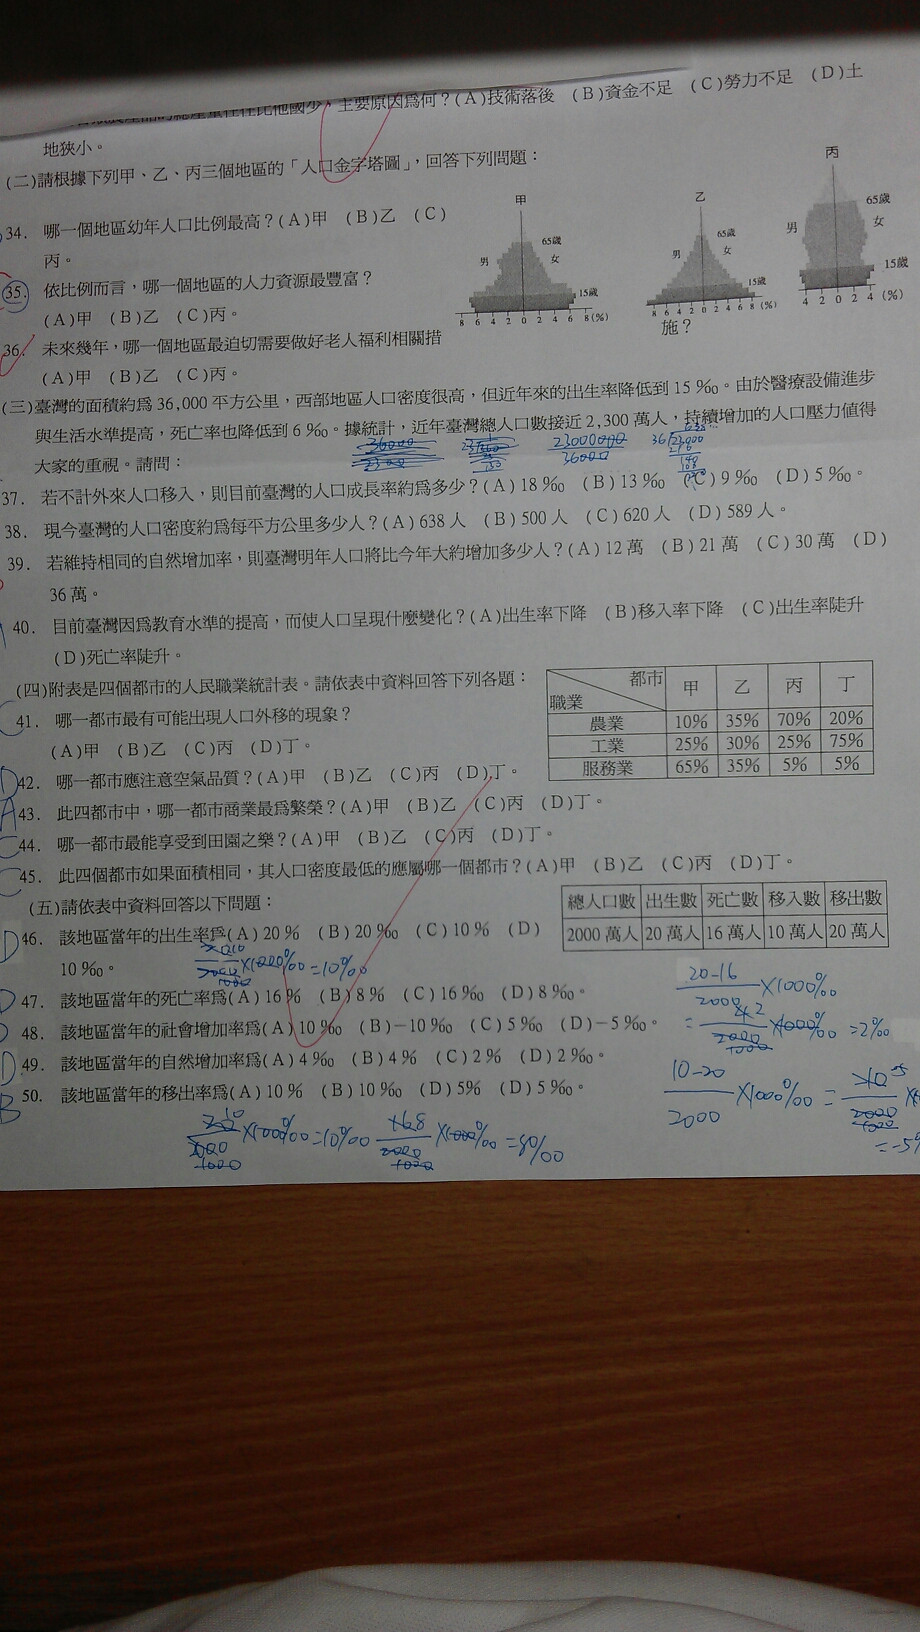 主要原因為何？(A)技術落後 (B)資金不足 (C)勞力不足 (D)土
地狹小。
(二)請根據下列甲、乙、丙三個地區的「人口金字塔圖」，回答下列問題：
34. 哪一個地區幼年人口比例最高？(A)甲 (B)乙 (C)
丙。
35. 依比例而言，哪一個地區的人力資源最豐富？
(A)甲 (B)乙 (C)丙。
36. 未來幾年，哪一個地區最迫切需要做好老人福利相關措
施？
(A)甲 (B)乙 (C)丙。
甲
65歲
男 女
15歲
8 6 4 2 0 2 4 6 8 (%)
乙
65歲
男 女
15歲
8 6 4 2 0 2 4 6 8 (%)
丙
65歲
男 女
15歲
4 2 0 2 4 (%)
(三)臺灣的面積約為 36,000 平方公里，西部地區人口密度很高，但近年來的出生率降低到 15 ‰。由於醫療設備進步
與生活水準提高，死亡率也降低到 6 ‰。據統計，近年臺灣總人口數接近 2,300 萬人，持續增加的人口壓力值得
大家的重視。請問：
23000000
36000
37. 若不計外來人口移入，則目前臺灣的人口成長率約為多少？(A) 18 ‰ (B) 13 ‰ (C) 9 ‰ (D) 5 ‰。
38. 現今臺灣的人口密度約為每平方公里多少人？(A) 638 人 (B) 500 人 (C) 620 人 (D) 589 人。
39. 若維持相同的自然增加率，則臺灣明年人口將比今年大約增加多少人？(A) 12 萬 (B) 21 萬 (C) 30 萬 (D)
36 萬。
40. 目前臺灣因為教育水準的提高，而使人口呈現什麼變化？(A)出生率下降 (B)移入率下降 (C)出生率陡升
(D)死亡率陡升。
(四)附表是四個都市的人民職業統計表。請依表中資料回答下列各題：
都市 甲 乙 丙 丁
職業
農業 10% 35% 70% 20%
工業 25% 30% 25% 75%
服務業 65% 35% 5% 5%
C 41. 哪一都市最有可能出現人口外移的現象？
(A)甲 (B)乙 (C)丙 (D)丁。
D 42. 哪一都市應注意空氣品質？(A)甲 (B)乙 (C)丙 (D)丁。
A 43. 此四都市中，哪一都市商業最為繁榮？(A)甲 (B)乙 (C)丙 (D)丁。
C 44. 哪一都市最能享受到田園之樂？(A)甲 (B)乙 (C)丙 (D)丁。
C 45. 此四個都市如果面積相同，其人口密度最低的應屬哪一個都市？(A)甲 (B)乙 (C)丙 (D)丁。
(五)請依表中資料回答以下問題：
總人口數 出生數 死亡數 移入數 移出數
2000 萬人 20 萬人 16 萬人 10 萬人 20 萬人
D 46. 該地區當年的出生率為(A) 20 % (B) 20 ‰ (C) 10 % (D)
10 ‰。
×1000‰=10‰
D 47. 該地區當年的死亡率為(A) 16 % (B) 8 % (C) 16 ‰ (D) 8 ‰。
D 48. 該地區當年的社會增加率為(A) 10 ‰ (B)－10 ‰ (C) 5 ‰ (D)－5 ‰。
D 49. 該地區當年的自然增加率為(A) 4 ‰ (B) 4 % (C) 2 % (D) 2 ‰。
B 50. 該地區當年的移出率為(A) 10 % (B) 10 ‰ (D) 5% (D) 5 ‰。
20-16
2000
×1000‰
×1000‰ =2‰
10-20
2000
×1000‰ =
=-5
×1000‰=10‰
×1000‰ =8‰